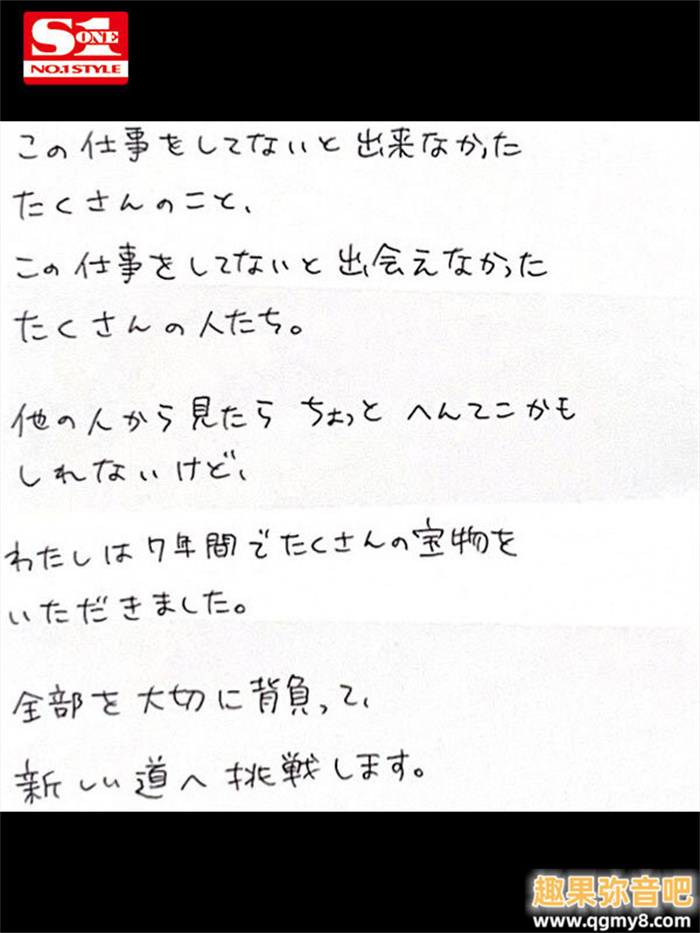 S1
ONE
NO.1 STYLE
この仕事をしてないと出来なかった
たくさんのこと、
この仕事をしてないと出会えなかった
たくさんの人たち。
他の人から見たら ちょっと へんてこかも
しれないけど、
わたしは7年間でたくさんの宝物を
いただきました。
全部を大切に背負って、
新しい道へ挑戦します。
趣果弥音吧
www.qgmy8.com